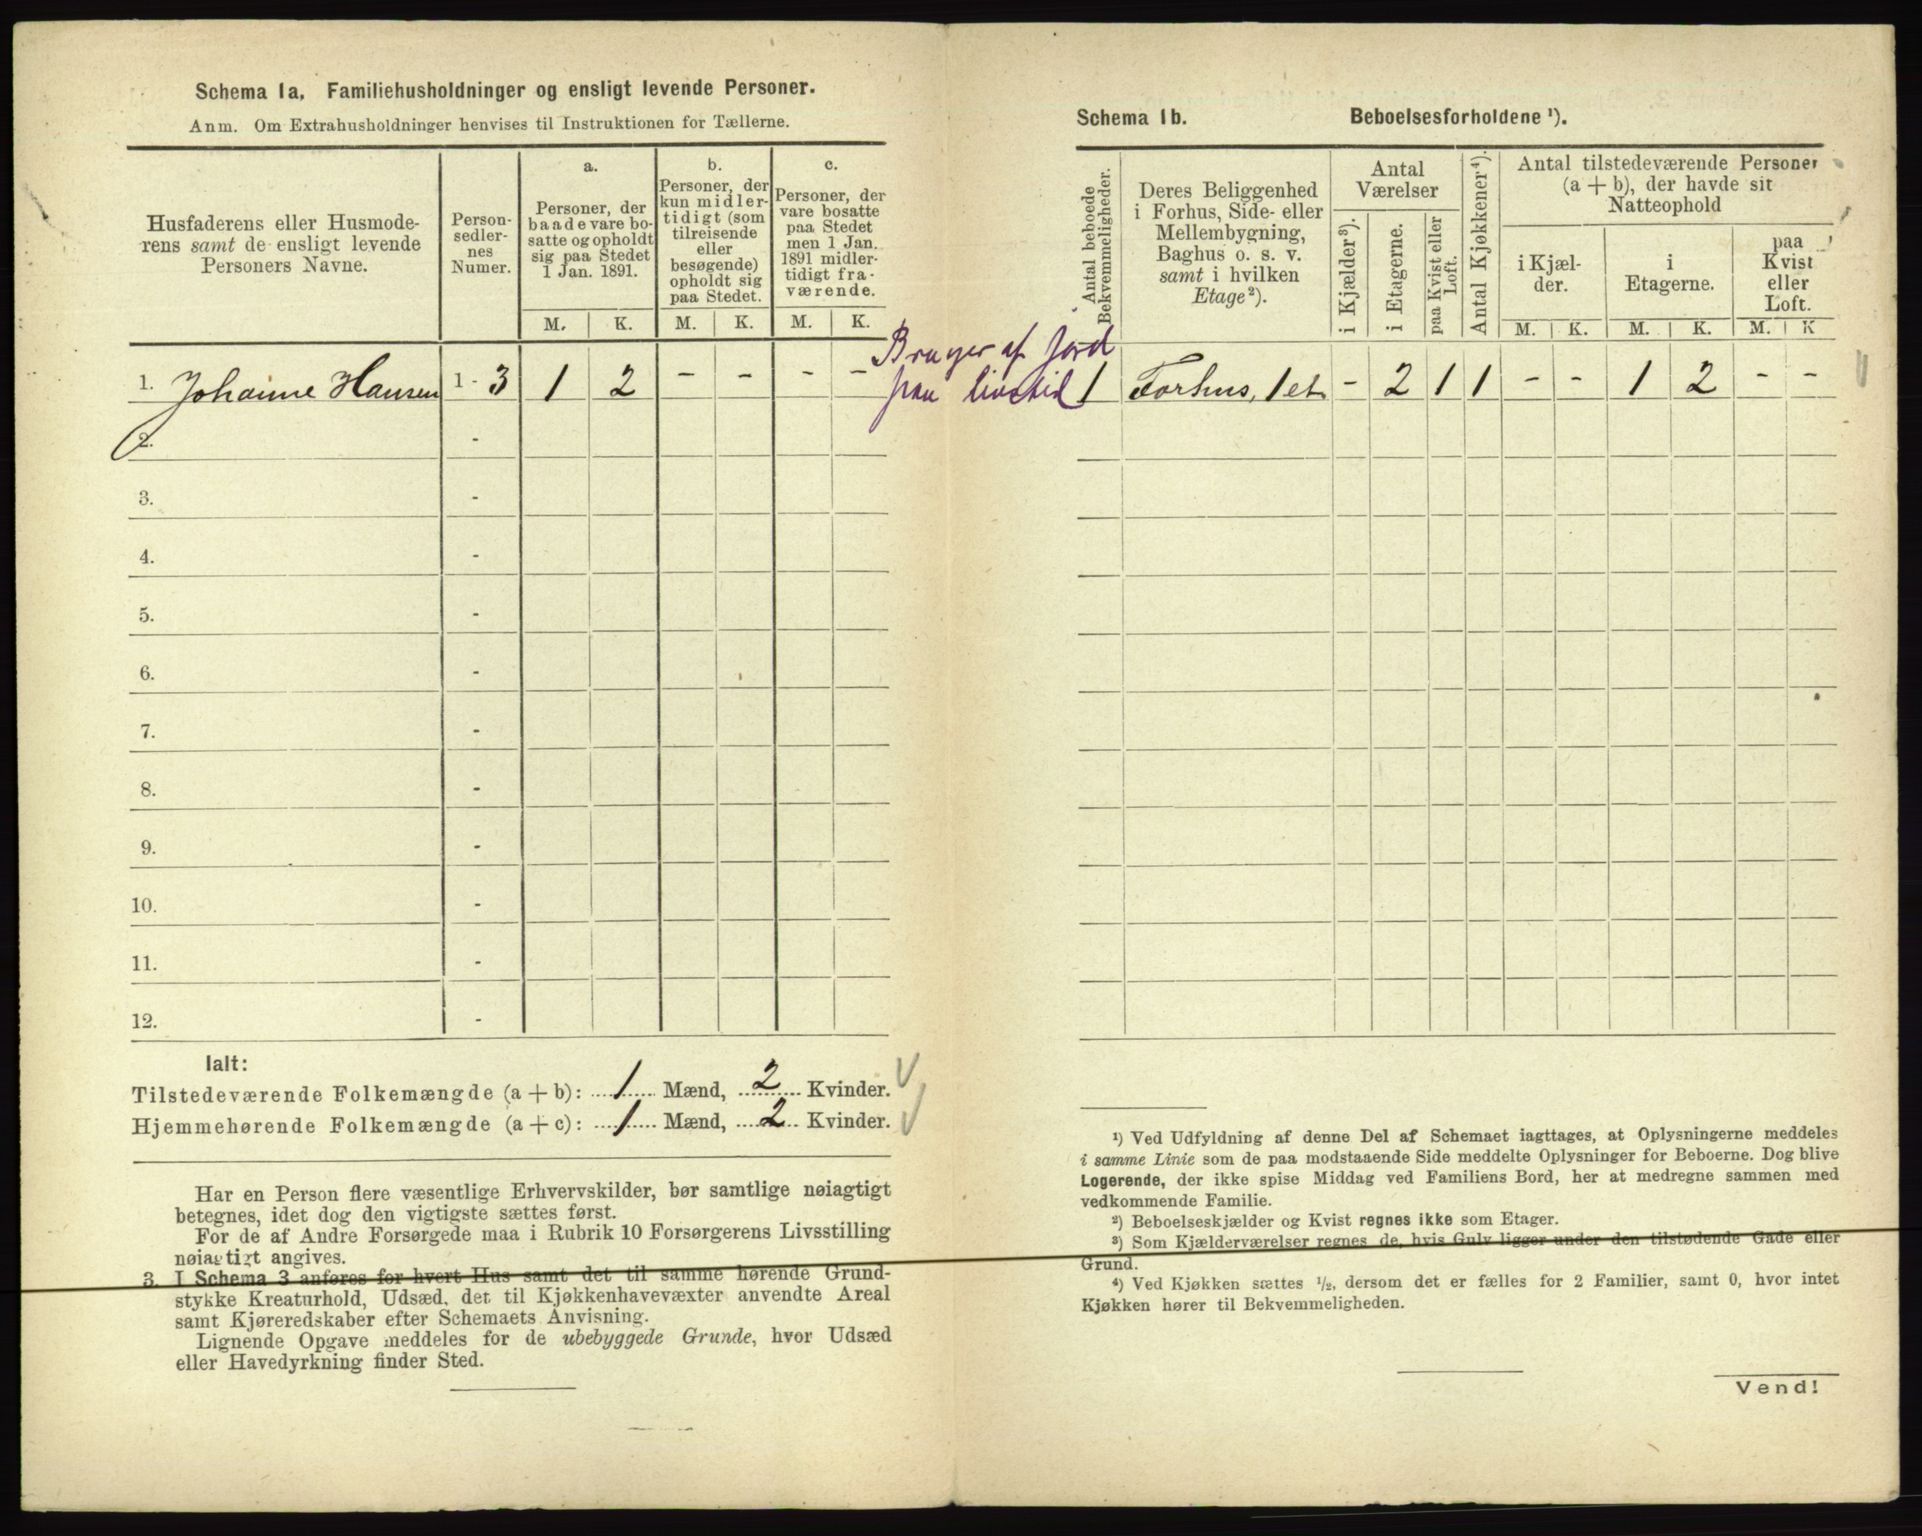 Schema 1a. Familiehusholdninger og ensligt levende Personer.
Anm. Om Extrahusholdninger henvises til Instruktionen for Tællerne.
Husfaderens eller Husmode-
rens samt de ensligt levende
Personers Navne.
Person-
sedler-
nes
Numer.
a.
Personer, der
baade vare bo-
satte og opholdt
sig paa Stedet
1 Jan. 1891.
M. K.
b.
Personer, der
kun midler-
tidigt (som
tilreisende
eller
besøgende)
opholdt sig
paa Stedet.
M. K.
c.
Personer, der
vare bosatte
paa Stedet
men 1 Jan.
1891 midler-
tidigt fra-
værende.
M. K.
1. Johanne Hansen 1 - 3 1 2 - - - -
2. -
3. -
4. -
5. -
6. -
7. -
8. -
9. -
10. -
11. -
12. -
Ialt:
Tilstedeværende Folkemængde (a + b): 1 Mænd, 2 Kvinder.
Hjemmehørende Folkemængde (a + c): 1 Mænd, 2 Kvinder.
Har en Person flere væsentlige Erhvervskilder, bør samtlige nøiagtigt
betegnes, idet dog den vigtigste sættes først.
For de af Andre Forsørgede maa i Rubrik 10 Forsørgerens Livsstilling
nøiagtigt angives.
3. I Schema 3 anføres for hvert Hus samt det til samme hørende Grund-
stykke Kreaturhold, Udsæd, det til Kjøkkenhavevæxter anvendte Areal
samt Kjøreredskaber efter Schemaets Anvisning.
Lignende Opgave meddeles for de ubebyggede Grunde, hvor Udsæd
eller Havedyrkning finder Sted.
Schema 1b. Beboelsesforholdene ¹).
Antal beboede
Bekvemmeligheder.
Deres Beliggenhed
i Forhus, Side- eller
Mellembygning,
Baghus o. s. v.
samt i hvilken
Etage ²).
Antal
Værelser
i Kjælder ³).
i Etagerne.
paa Kvist eller
Loft.
Antal Kjøkkener ⁴).
Antal tilstedeværende Personer
(a + b), der havde sit
Natteophold
i Kjæl-
der.
i
Etagerne.
paa
Kvist
eller
Loft.
M. K. M. K. M. K
Bruger af jord
paa livstid
1 Forhus, 1 et. - 2 1 1 - - 1 2 - -
¹) Ved Udfyldning af denne Del af Schemaet iagttages, at Oplysningerne meddeles
i samme Linie som de paa modstaaende Side meddelte Oplysninger for Beboerne. Dog blive
Logerende, der ikke spise Middag ved Familiens Bord, her at medregne sammen med
vedkommende Familie.
²) Beboelseskjælder og Kvist regnes ikke som Etager.
³) Som Kjælderværelser regnes de, hvis Gulv ligger under den tilstødende Gade eller
Grund.
⁴) Ved Kjøkken sættes ¹/₂, dersom det er fælles for 2 Familier, samt 0, hvor intet
Kjøkken hører til Bekvemmeligheden.
Vend!